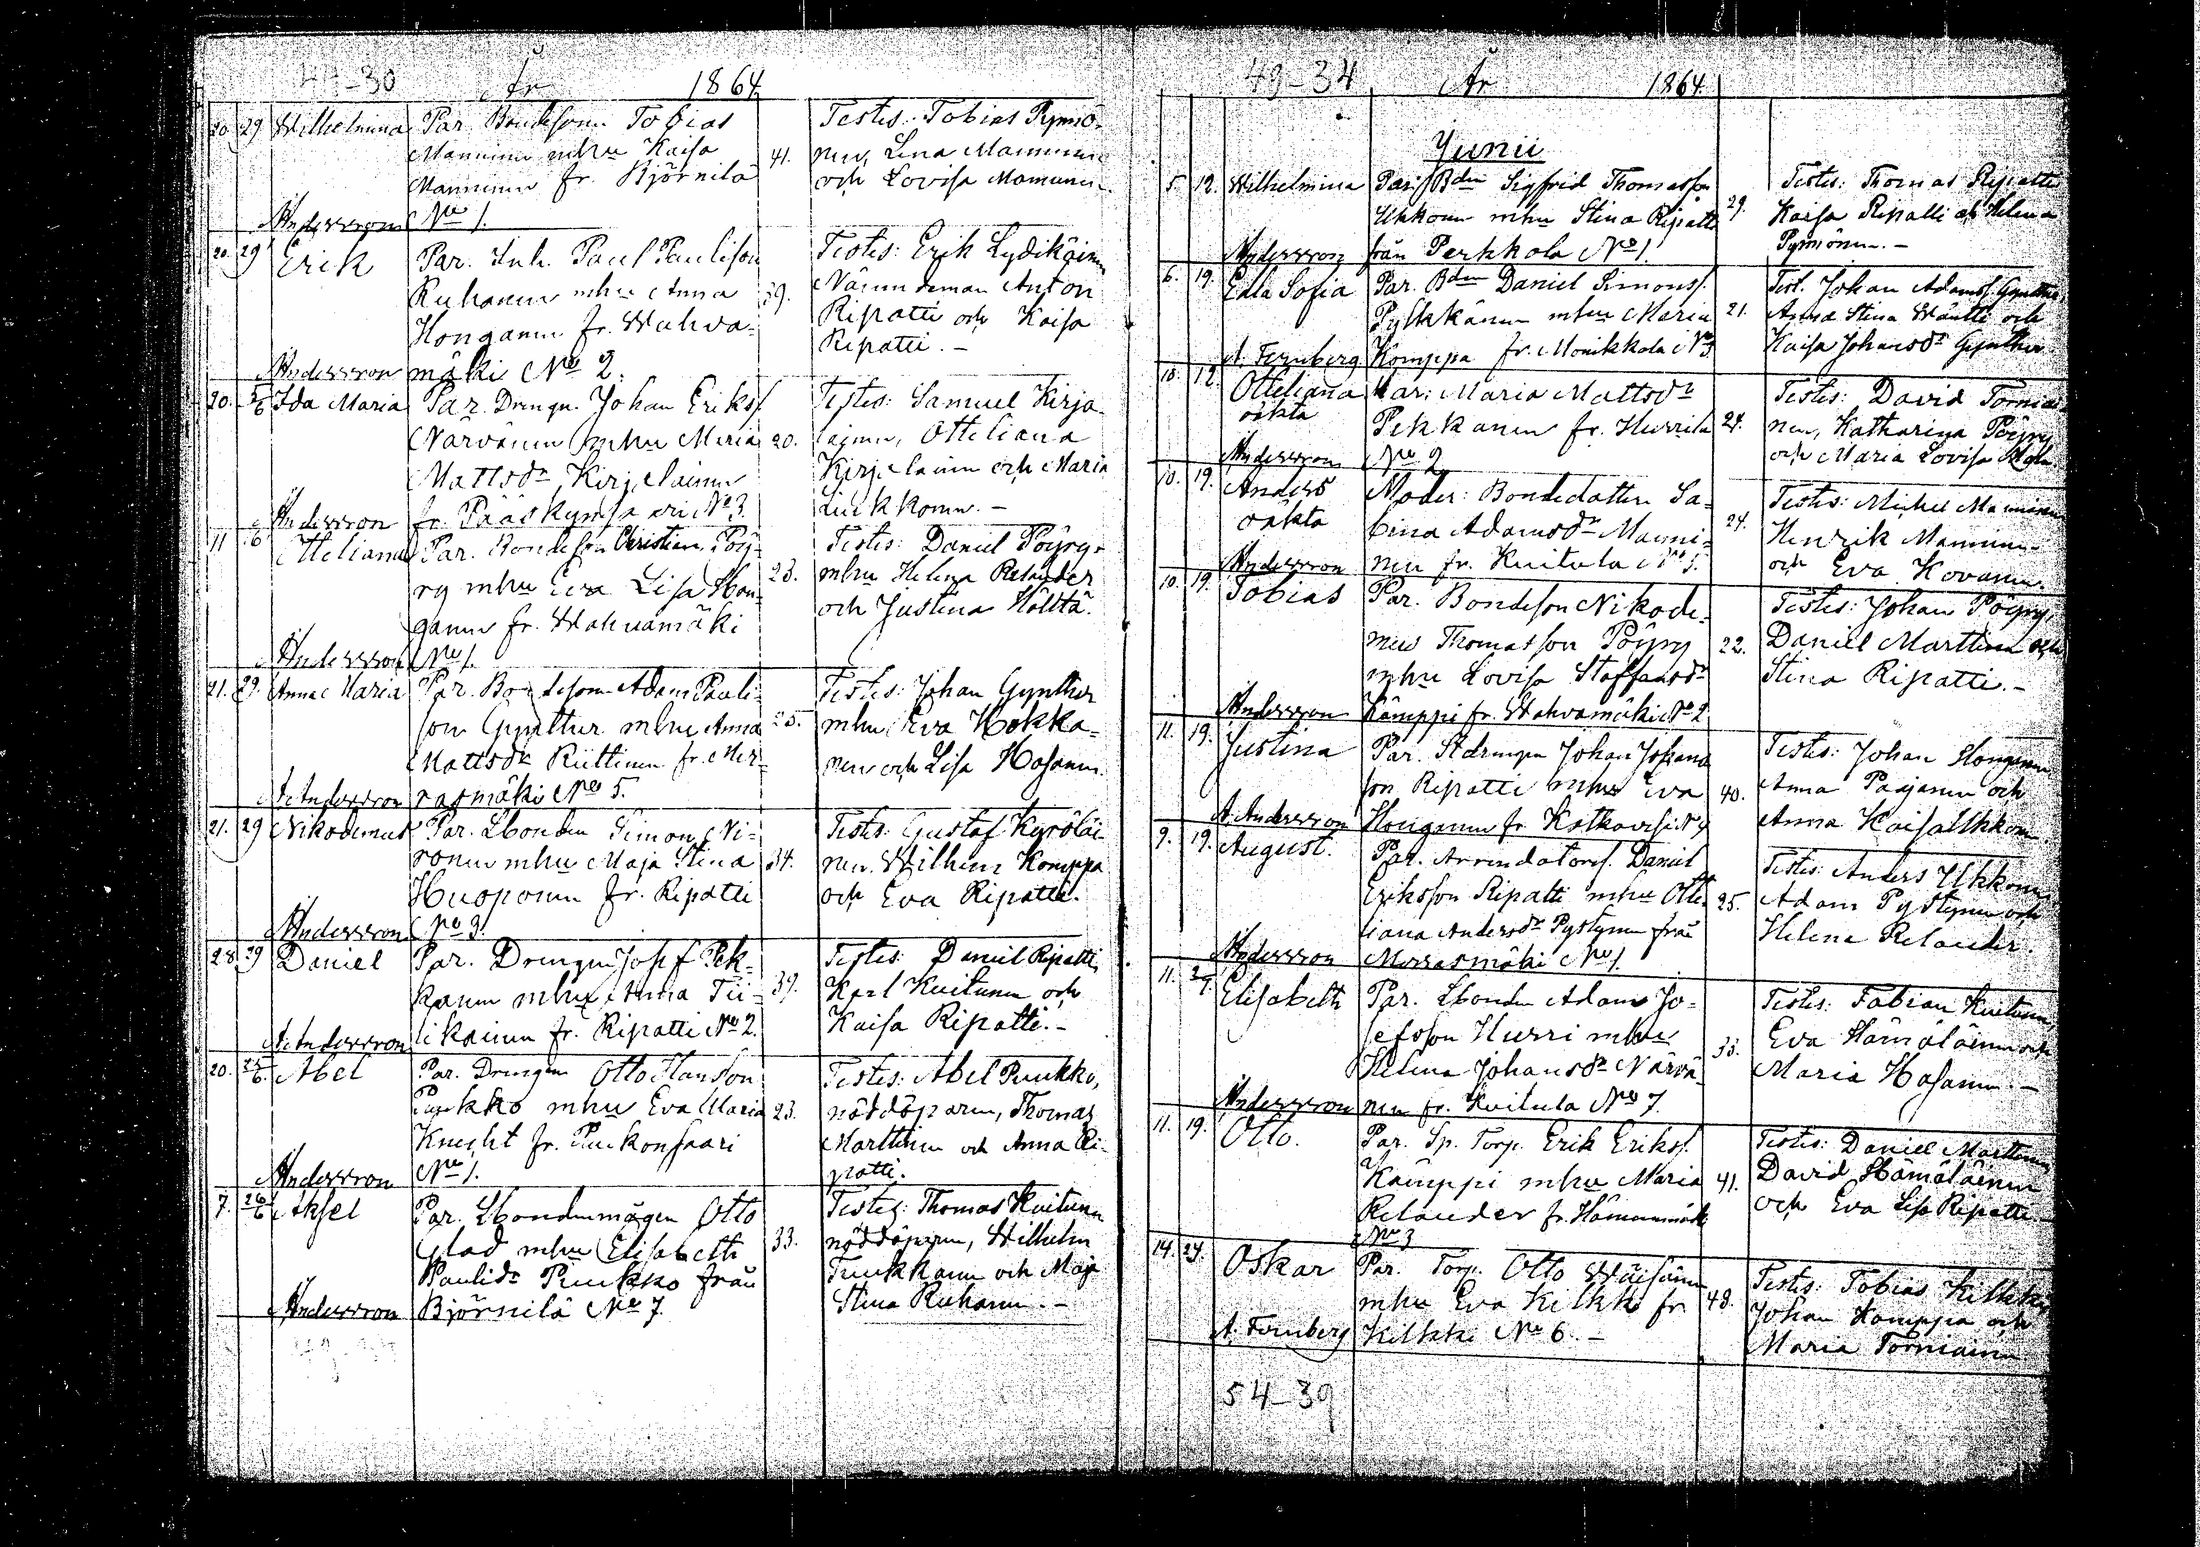 44-30 År 1864
20. 29 Wilhelmina Par. Bondeson Tobias
Manninen mhu Kaisa
Manninen fr. Björnilä
Andersson No 1.
41.
Testes: Tobias Pymö-
nen, Lena Manninen
och Lovisa Manninen.
20. 29 Erik Par. Inh. Paul Paulsson
Ruhanen mhu Anna
Honganen fr. Wahva-
Andersson mäki No 2.
39.
Testes: Erik Lydikäinen
Nämndeman Anton
Ripatti och Kaisa
Ripatti. –
20. 5/6 Ida Maria Par. Drengn. Johan Eriks/
Närvänen mhu Maria
Mattsdr Kirjelainen
Andersson fr. Pääskynsaari No 3.
20.
Testes: Samuel Kirja-
lainen, Otteliana
Kirjelainen och Maria
Liukkonen. –
11 Otteliana Par. Bondeson Christian Pöy-
ry mhu Eva Lisa Hon-
ganen fr. Wahvamäki
Andersson No 1.
23.
Testes: Daniel Pöyry
mhu Helena Relander
och Justina Hölttä.
21. 29. Anna Maria Par. Bondeson Adam Pauls-
son Gynther mhu Anna
Mattsdr Riittinen fr. Mer-
A. Andersson rasmäki No 5.
25.
Testes: Johan Gynther
mhu Eva Hokka-
nen och Lisa Hasanen.
21. 29 Nikodemus Par. Lbonden Simon Ni-
ronen mhu Maja Stina
Huoponen fr. Ripatti
Andersson No 3.
34.
Testes: Gustaf Kyröläi-
nen, Wilhelm Komppa
och Eva Ripatti.
28 29 Daniel Par. Drengen Josef Pek-
kanen mhu Anna Tii-
A. Andersson likainen fr. Ripatti No 2.
39.
Testes: Daniel Ripatti,
Karl Kuitunen och
Kaisa Ripatti. –
20. Abel Par. Drengen Otto Hansson
Puukko mhu Eva Maria
Knecht fr. Puukonsaari
Andersson No 1.
23.
Testes: Abel Puukko,
nöddöparen, Thomas
Marttinen och Anna Ri-
patti.
7. 26/6 Aksel Par. Lbondemågen Otto
Glad mhu Elisabeth
Paulsdr Puukko från
Andersson Björnilä No 7
33.
Testes: Thomas Kuitunen
nöddöparen, Wilhelm
Tuukkanen och Maja
Stina Ruhanen. –
49-34 År 1864
Junii
5. 12. Wilhelmina Par. Bden Sigfrid Thomasson
Ukkonen mhu Stina Ripatti
Andersson från Perkkola No 1.
29.
Testes: Thomas Ripatti
Kaisa Ripatti och Helena
Pymönen. –
6. 19. Edla Sofia Par. Bden Daniel Simonss.
Pylkkänen mhu Maria
A. Fernberg Komppa fr. Monikkola No 3
21.
Test. Johan Adamss. Gynther,
Anna Stina Wäntti och
Kaisa Johansdr Gynther.
10. 12. Otteliana Mar: Maria Mattsdr
oäkta Pekkanen fr. Hurrila
Andersson No 2
24.
Testes: David Torniai-
nen, Katharina Pöyry
och Maria Lovisa
10. 19. Anders Moder: Bondedottren Sa-
oäkta bina Adamsdr Manni-
Andersson nen fr. Kuitula No 5.
24.
Testes: Michel Manninen
Henrik Manninen
och Eva Kovanen.
10. 19. Tobias Par. Bondeson Nikode-
mus Thomasson Pöyry
mhu Lovisa Staffansdr
Andersson Kämppi fr. Wahvamäki No 2
22.
Testes: Johan Pöyry,
Daniel Marttinen och
Stina Ripatti. –
11. 19. Justina Par. Stdrengen Johan Johans
son Ripatti mhu Eva
A. Andersson Honganen fr. Kotkavesi No 4
40.
Testes: Johan Honganen
Anna Paajanen och
Anna Kaisa Ukkonen
9. 19. August. Par. Arrendators. Daniel
Eriksson Ripatti mhu Otte-
liana Andersdr Pystynen från
Andersson Merrasmäki No 1.
25.
Testes: Anders Ukkonen
Adam Pystynen och
Helena Relander.
11. Elisabeth Par. Lbonden Adam Jo-
sefsson Hurri mhu
Helena Johansdr Närvä-
Andersson nen fr. Kuitula No 7.
33.
Testes: Fabian Kuitunen,
Eva Hämäläinen och
Maria Hasanen. –
11. 19. Otto. Par. Sp. Torp. Erik Eriks/.
Kämppi mhu Maria
Relander fr. Hämeenmäki
No 3
41.
Testes: Daniel Marttinen,
David Hämäläinen
och Eva Lisa Ripatti. –
14. 24. Oskar Par. Torp. Otto Wäisänen
mhu Eva Kilkki fr.
A. Fernberg Kilkki No 6. –
48.
Testes: Tobias Kilkki,
Johan Komppa och
Maria Torniainen
54-39